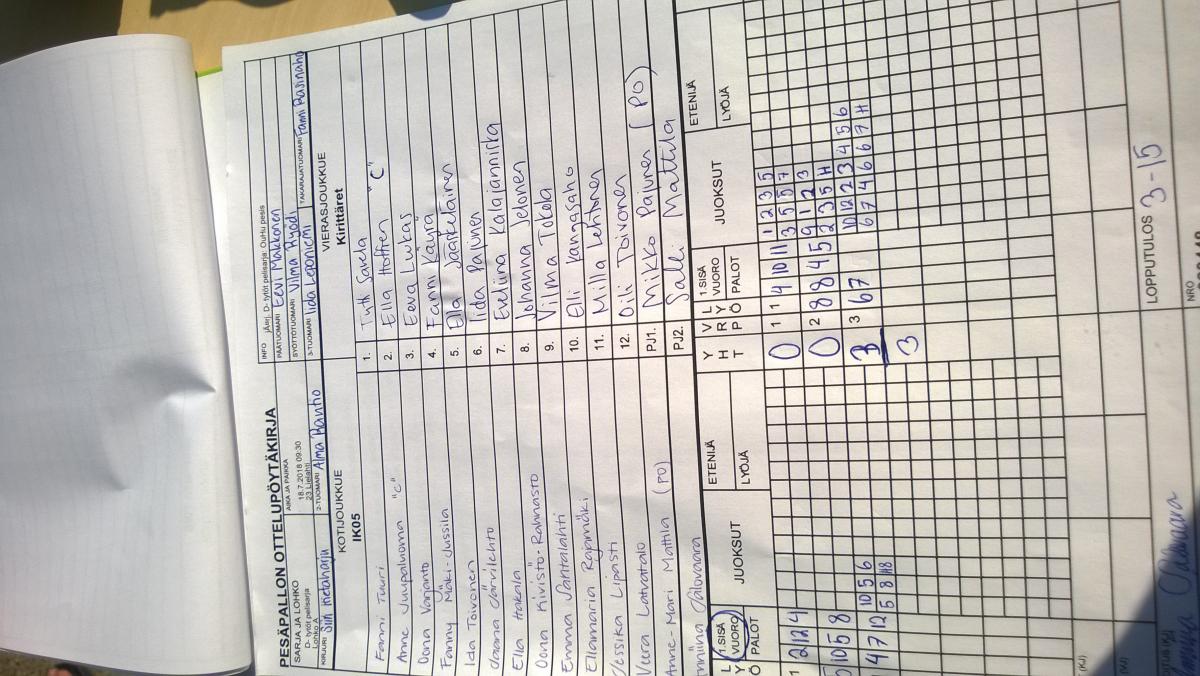 PESÄPALLON OTTELUPÖYTÄKIRJA
SARJA JA LOHKO
D- tytöt pelisarja
Lohko A
AIKA JA PAIKKA
18.7.2018 09:30
23 Lielahti
INFO jÄsrj. D- tytöt pelisarja: OuHu pesis
PÄÄTUOMARI Eevi Makkonen
SYÖTTÖTUOMARI Vilma Ryödi
KIRJURI Siiri Hietaharju
2-TUOMARI Alma Rantio
3-TUOMARI Iida Leponiemi
TAKARAJATUOMARI Fanni Rasinaho
KOTIJOUKKUE
IK05
VIERASJOUKKUE
Kirittäret
Fanni Tuuri
Anne Juupaluoma "C"
Oona Varjanto
Fanny Mäki-Jussila
Iida Toivonen
Jaana Järvilehto
Ella Hakala
Oona Kivistö-Rahnasto
Emma Jäntälahti
Ellamaria Rajamäki
Jessika Lipasti
Veera Latvatalo
Anne-Mari Mattila (PO)
Anniina Salovaara
1. Tytti Savela
2. Ella Hoffren "C"
3. Eeva Lukas
4. Fanni Käyrä
5. Ella Jääskeläinen
6. Iida Pajunen
7. Eveliina Kalajanniska
8. Johanna Jelonen
9. Vilma Tokola
10. Elli Kangasaho
11. Milla Lehtonen
12. Oili Toivonen
PJ1. Mikko Pajunen (PO)
PJ2. Salli Mattila
1.SISÄ VUORO
PALOT
JUOKSUT
ETENIJÄ
LYÖJÄ
YHT
VRP
LYÖ
1.SISÄ VUORO
PALOT
JUOKSUT
ETENIJÄ
LYÖJÄ
1 2 12 4
0 1 4 10 11 1 2 3 5
3 5 5 7
10 5 8
0 2 8 8 4 5 9 1 2 3
2 3 5 H
4 7 12 10 5 6
5 8 H8
3 3 6 7 10 12 2 3 4 5 6
6 7 4 6 6 7 H
3
LOPPUTULOS 3-15
NRO